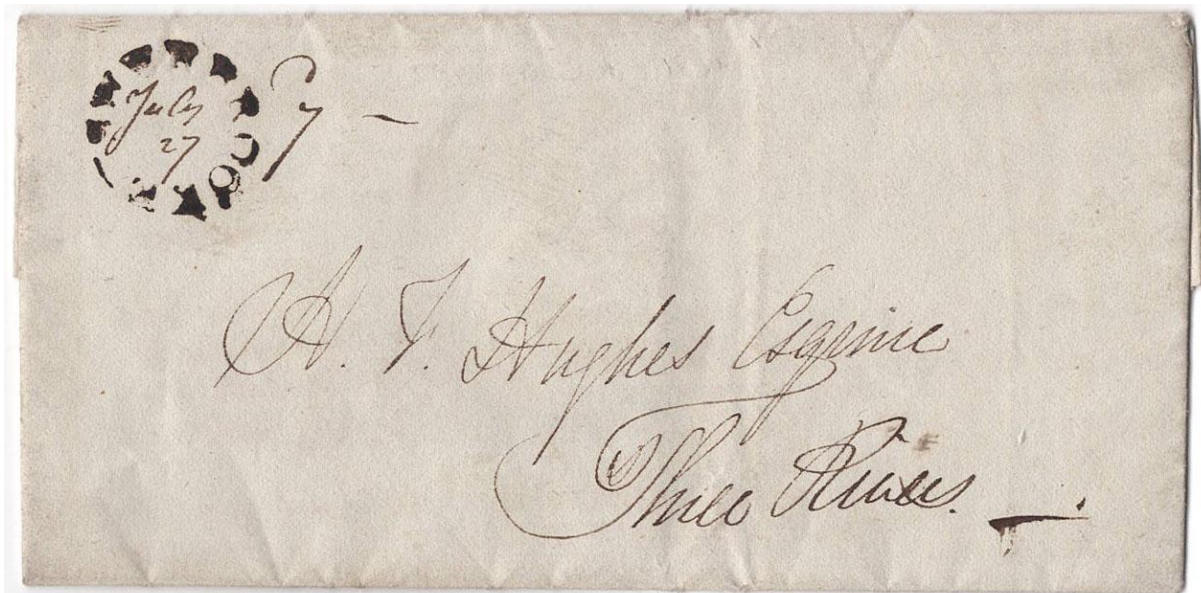 July
27
7 -
H. F. Hughes Esquire
Three Rivers.